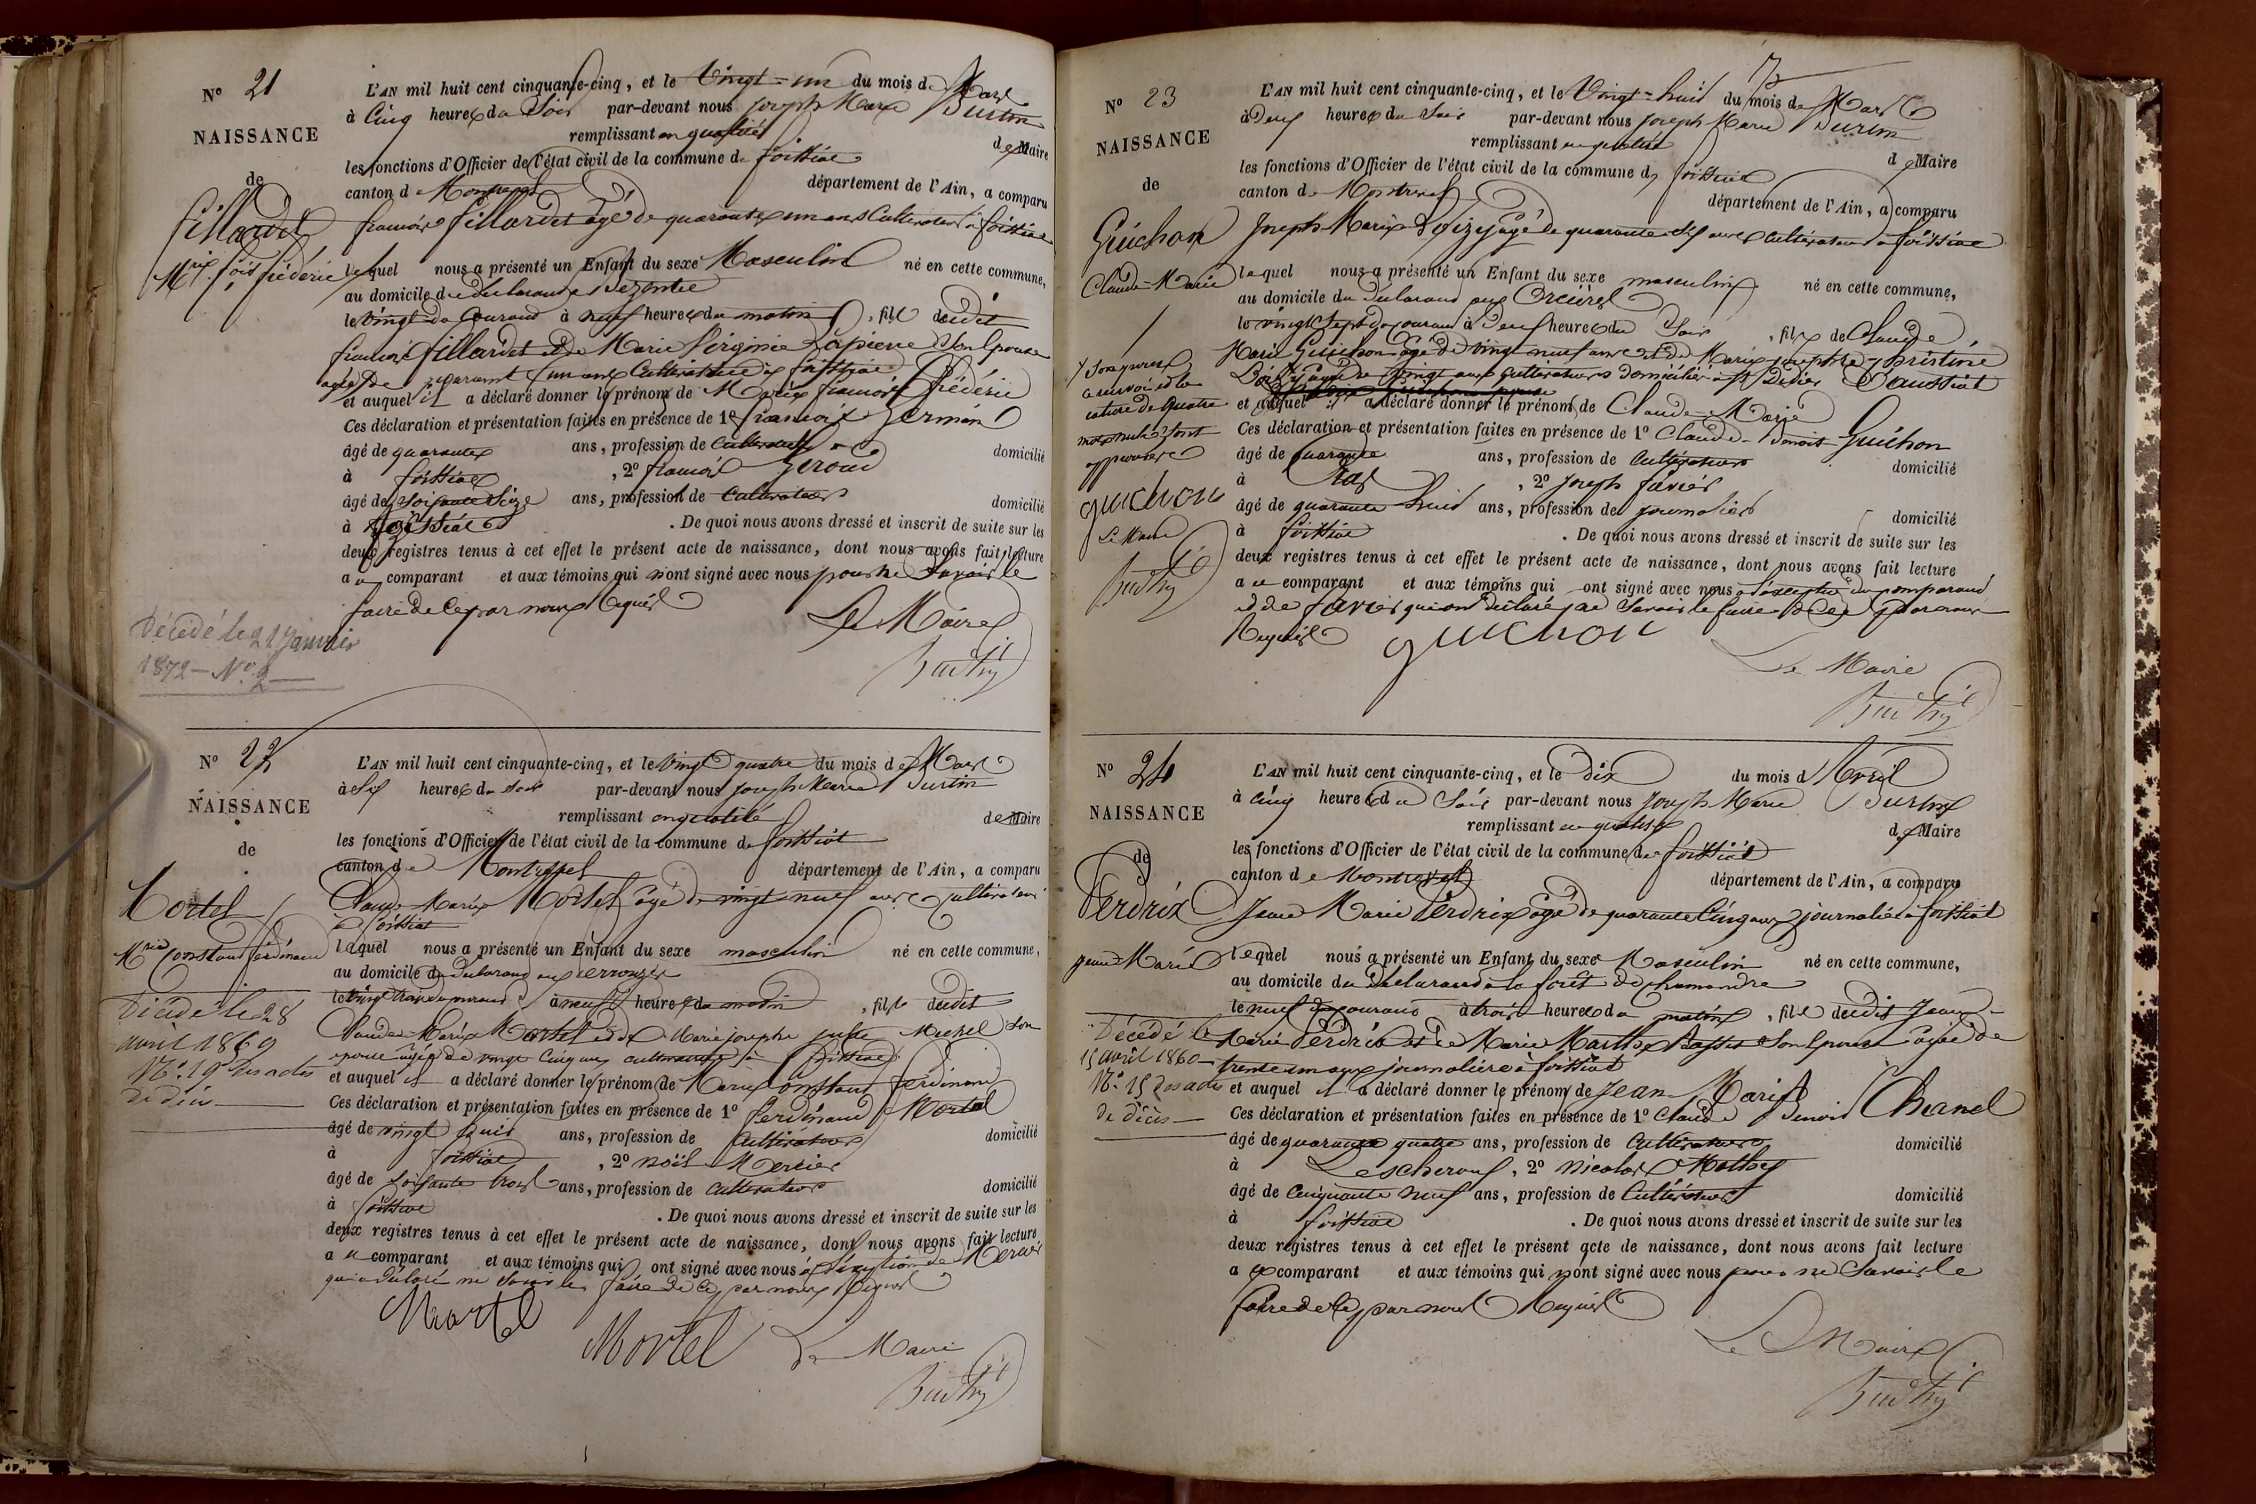 N° 21
NAISSANCE
de
Fillardet
Mie fois frédéric
L'AN mil huit cent cinquante-cinq, et le Vingt = un du mois de Mars
à Cinq heures du Soir par-devant nous Joseph Marie Burtin
remplissant en qualité de Maire
les fonctions d'Officier de l'état civil de la commune de foissiat
canton de Montrevel département de l'Ain, a comparu
françois fillardet âgé de quarante un ans Cultivateur à foissiat
lequel nous a présenté un Enfant du sexe Masculin né en cette commune,
au domicile du déclarant
le vingt du Courant à neuf heures du matin, fils dudit
françois fillardet et de Marie Virginie Lapierre Son Epouse
âgée de quarante un ans Cultivatrice à foissiat
et auquel il a déclaré donner le prénom de Marie françois frédéric
Ces déclaration et présentation faites en présence de 1° françois Germain
âgé de quarante ans, profession de Cultivateur domicilié
à foissiat, 2° françois Geroud
âgé de soixante Seize ans, profession de Cultivateur domicilié
à foissiat. De quoi nous avons dressé et inscrit de suite sur les
deux registres tenus à cet effet le présent acte de naissance, dont nous avons fait lecture
au comparant et aux témoins qui n'ont signé avec nous pour ne Savoir le
faire de Ce par nous Requis
Le Maire
Décédé le 21 Janvier
1872 – N° 2
N° 22
NAISSANCE
de
Mortel
Mrie Constant ferdinand
Décédé le 28
avril 1869
N° 19 des actes
de décès
L'AN mil huit cent cinquante-cinq, et le Vingt quatre du mois de Mars
à Six heures du soir par-devant nous Joseph Marie Burtin
remplissant en qualité de Maire
les fonctions d'Officier de l'état civil de la commune de foissiat
canton de Montrevel département de l'Ain, a comparu
Claude Marie Mortel âgé de vingt neuf ans Cultivateur
à foissiat
lequel nous a présenté un Enfant du sexe masculin né en cette commune,
au domicile du déclarant aux
le vingt trois du courant à neuf heures du matin, fils dudit
Claude Marie Mortel et de Marie josephe Michel Son
epouse âgée de vingt Cinq ans cultivatrice à foissiat
et auquel il a déclaré donner le prénom de Marie Constant ferdinand
Ces déclaration et présentation faites en présence de 1° ferdinand Mortel
âgé de vingt huit ans, profession de Cultivateur domicilié
à foissiat, 2° Noël Mercier
âgé de soixante trois ans, profession de Cultivateur domicilié
à foissiat. De quoi nous avons dressé et inscrit de suite sur les
deux registres tenus à cet effet le présent acte de naissance, dont nous avons fait lecture
au comparant et aux témoins qui ont signé avec nous à l'éxeption de Mercier
qui a déclaré ne Savoir le faire de Ce par nous Requis
Mortel
Mortel Le Maire
N° 23
NAISSANCE
de
Guichon
Claude = Marie
guichon
Le Maire
L'AN mil huit cent cinquante-cinq, et le Vingt = huit du mois de Mars
à Deux heures du Soir par-devant nous Joseph Marie Burtin
remplissant en qualité de Maire
les fonctions d'Officier de l'état civil de la commune de foissiat
canton de Montrevel département de l'Ain, a comparu
Joseph Marie Loizy âgé de quarante six ans Cultivateur à foissiat
lequel nous a présenté un Enfant du sexe masculin né en cette commune,
au domicile du déclarant aux
le vingt Sept du courant à Deux heures du Soir, fils de Claude
Marie Guichon âgé de vingt neuf ans et de Marie josephte Christine
Loizy âgée de vingt ans cultivateurs domiciliés à St Didier D'aussiat
et auquel il a déclaré donner le prénom de Claude = Marie
Ces déclaration et présentation faites en présence de 1° Claude = Benoit Guichon
âgé de quarante ans, profession de Cultivateur domicilié
à Cras, 2° Joseph favier
âgé de quarante huit ans, profession de journalier domicilié
à foissiat. De quoi nous avons dressé et inscrit de suite sur les
deux registres tenus à cet effet le présent acte de naissance, dont nous avons fait lecture
au comparant et aux témoins qui ont signé avec nous à l'éxeption du comparant
et de favier qui ont déclaré ne Savoir le faire de Ce par nous
Requis
guichon
Le Maire
N° 24
NAISSANCE
de
Perdrix
Jean Marie
Décédé le
15 avril 1860
N° 15 des actes
de décès
L'AN mil huit cent cinquante-cinq, et le Dix du mois d'Avril
à Cinq heures du Soir par-devant nous Joseph Marie Burtin
remplissant en qualité de Maire
les fonctions d'Officier de l'état civil de la commune de foissiat
canton de Montrevel département de l'Ain, a comparu
Jean Marie Perdrix âgé de quarante Cinq ans journalier à foissiat
lequel nous a présenté un Enfant du sexe Masculin né en cette commune,
au domicile du Déclarant à la forêt de chamandre
le neuf du courant à trois heures du matin, fils dudit Jean =
Marie Perdrix et de Marie Marthe Basset Son Epouse âgée de
trente un ans journalière à foissiat
et auquel il a déclaré donner le prénom de Jean Marie
Ces déclaration et présentation faites en présence de 1° Claude Benoit Chanel
âgé de quarante quatre ans, profession de Cultivateur domicilié
à Lescheroux, 2° Nicolas
âgé de Cinquante neuf ans, profession de Cultivateur domicilié
à foissiat. De quoi nous avons dressé et inscrit de suite sur les
deux registres tenus à cet effet le présent acte de naissance, dont nous avons fait lecture
au comparant et aux témoins qui n'ont signé avec nous pour ne Savoir le
faire de Ce par nous Requis
Le Maire